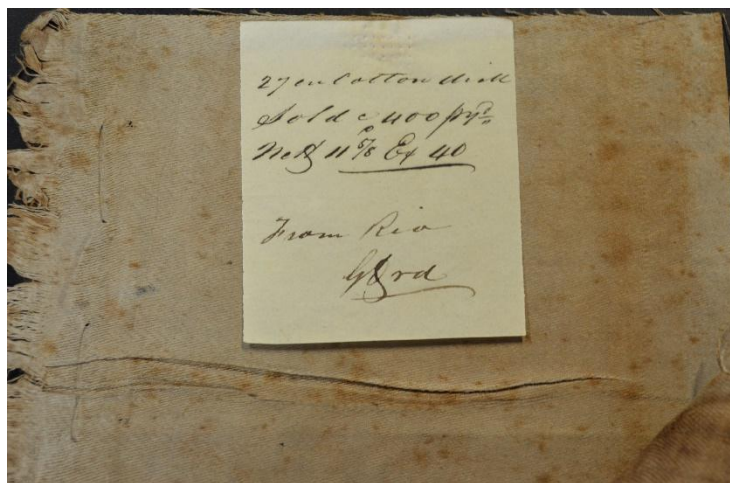 27 in Cotton drill
Sold @ 400 p yd
Nett 11 5/8 Ex 40
From Rio